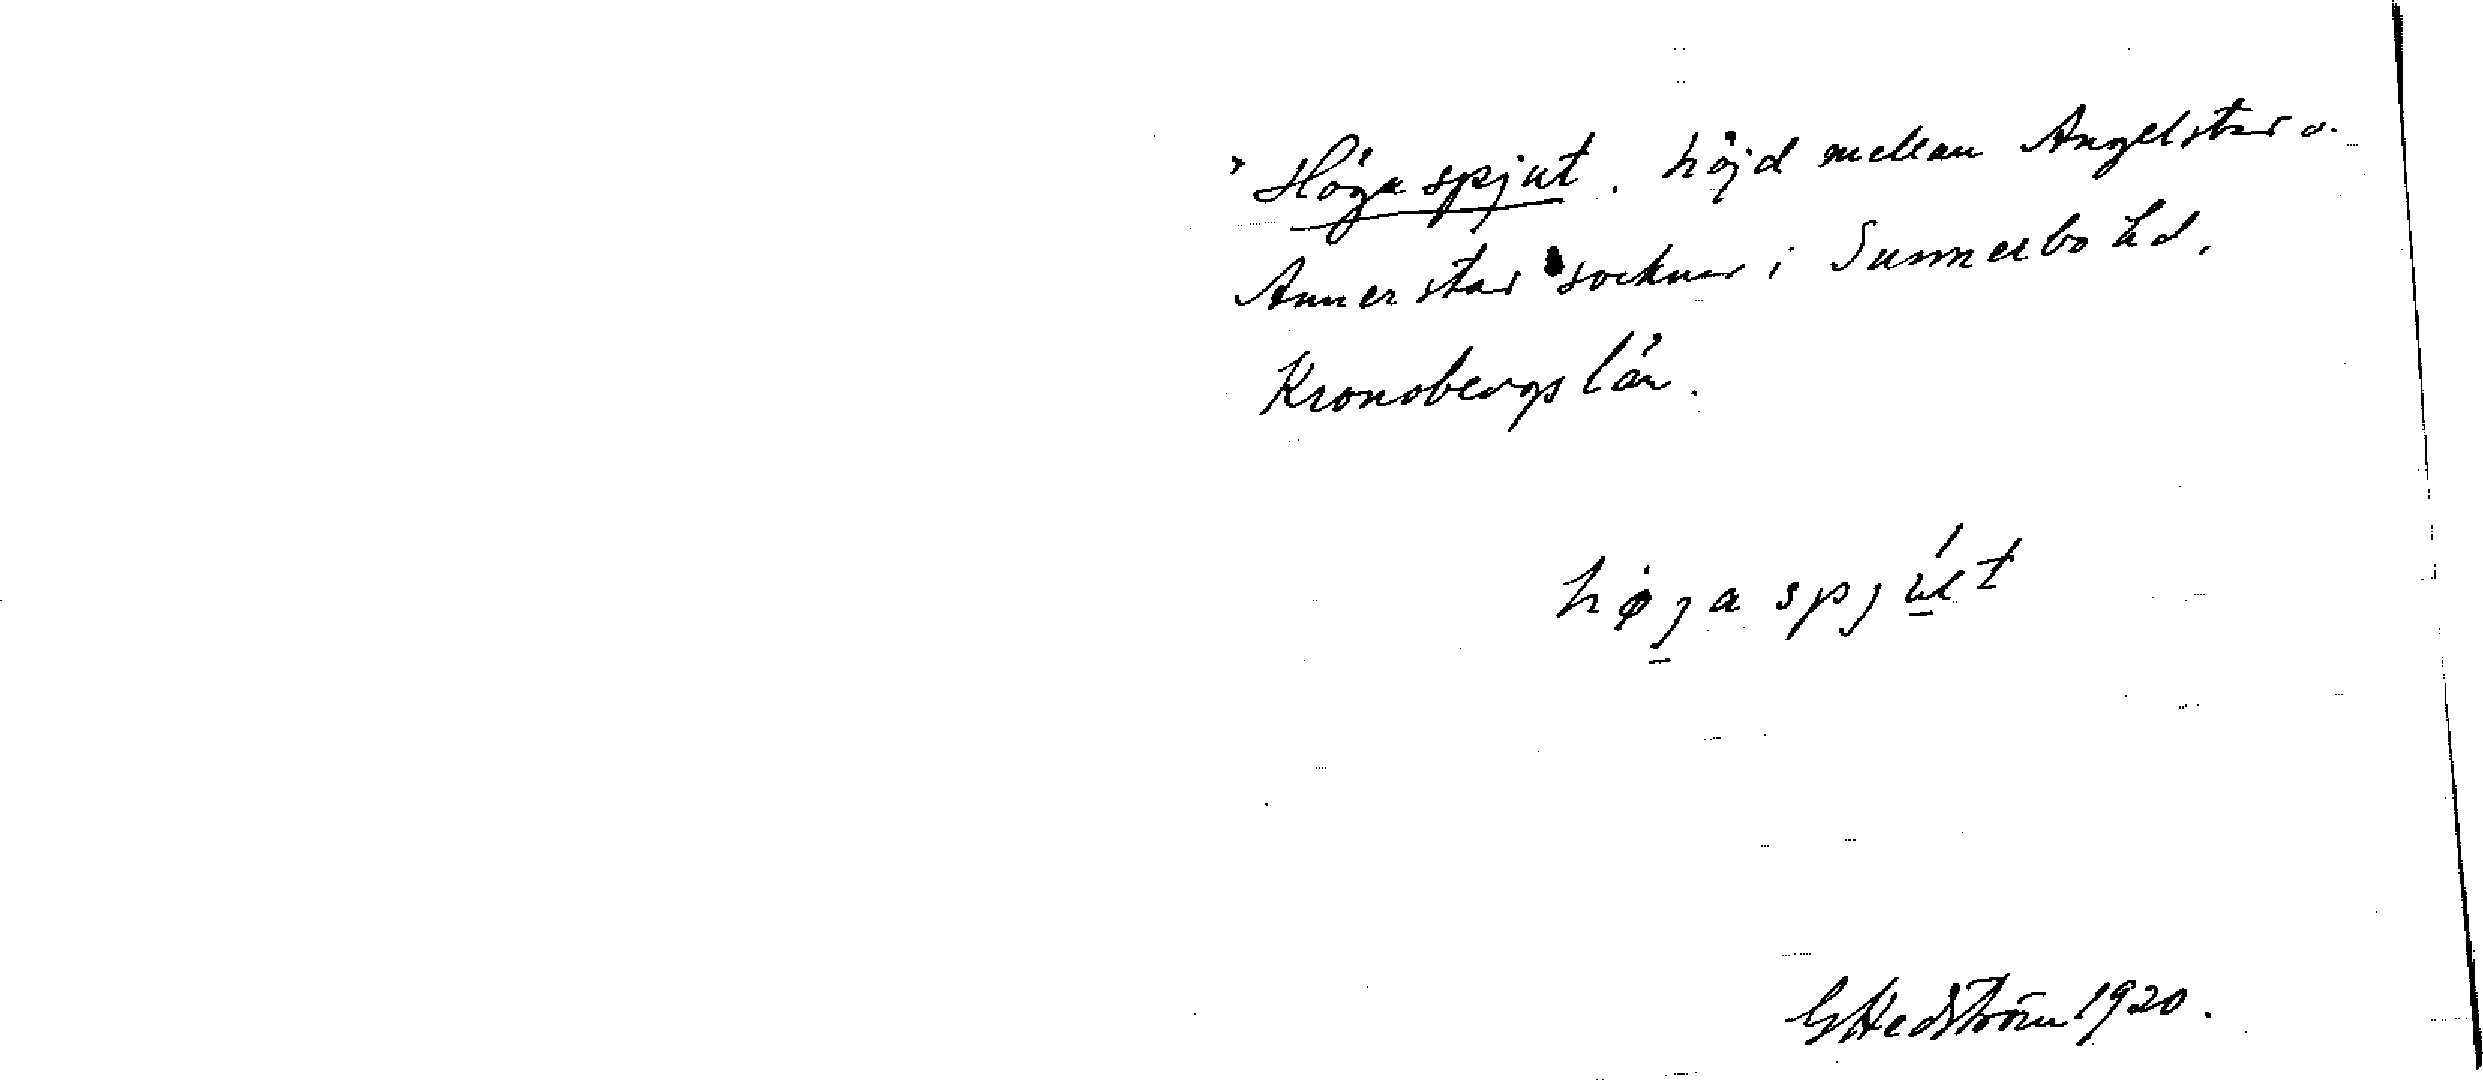 Höga spjut. höjd mellan Angelstad o.
Annerstad socknar i Sunnerbo hd.
Kronobergs län.
høga spjút
GHedström 1920.